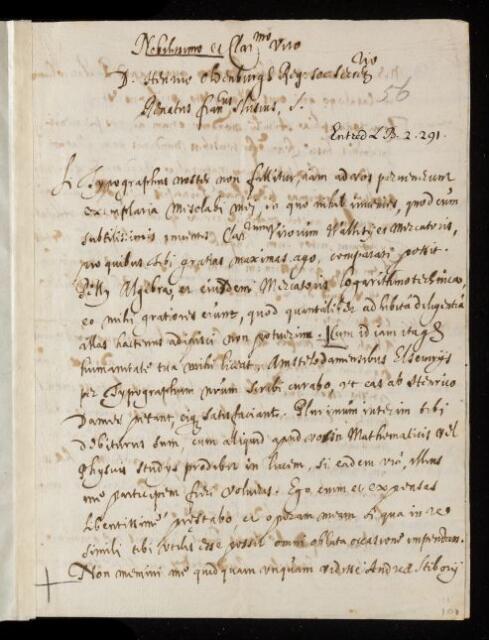 Nobilissimo et Clar^mo Viro
D. Henrico Oldenburgh Reg. Soc. Secret^rio
Renatus Fran^cus Slusius, S.
56
Entred L B. 2. 291.
Si Typographus noster non fallitur, iam ad vos pervenerunt
exemplaria Misolabi mei, in quo nihil invenies, quod cum
subtilissimis inventis Clar^mum Virorum Wallisij et Mercatoris,
pro quibus tibi gratias maximas ago, comparari possit.
Algebra, et eiusdem Mercatoris Logarithmotechnica,
eo mihi gratiores erunt, quod quantalibet adhibita diligentia
illas hactenus adipisci non potuerim. Cum id iam itaq
humanitate tua mihi liceat, Amstelodamensibus Elsevirijs
per Typographum nostrum scribi curabo, ut eas ab Henrico
petant, eiq satisfaciant. Plurimum interim tibi
debiturus sum, cum aliquid apud vos in Mathematicis vel
Physicis studijs prodibit in lucem, si eadem viâ, illius
me participem fieri volueris. Ego enim et expensas
libentissime præstabo et operam meam si qua in re
simili tibi utilis esse possit omni oblata occasione impendam.
Non memini me quidquam unquam vidisse Andreæ Stiborij
101